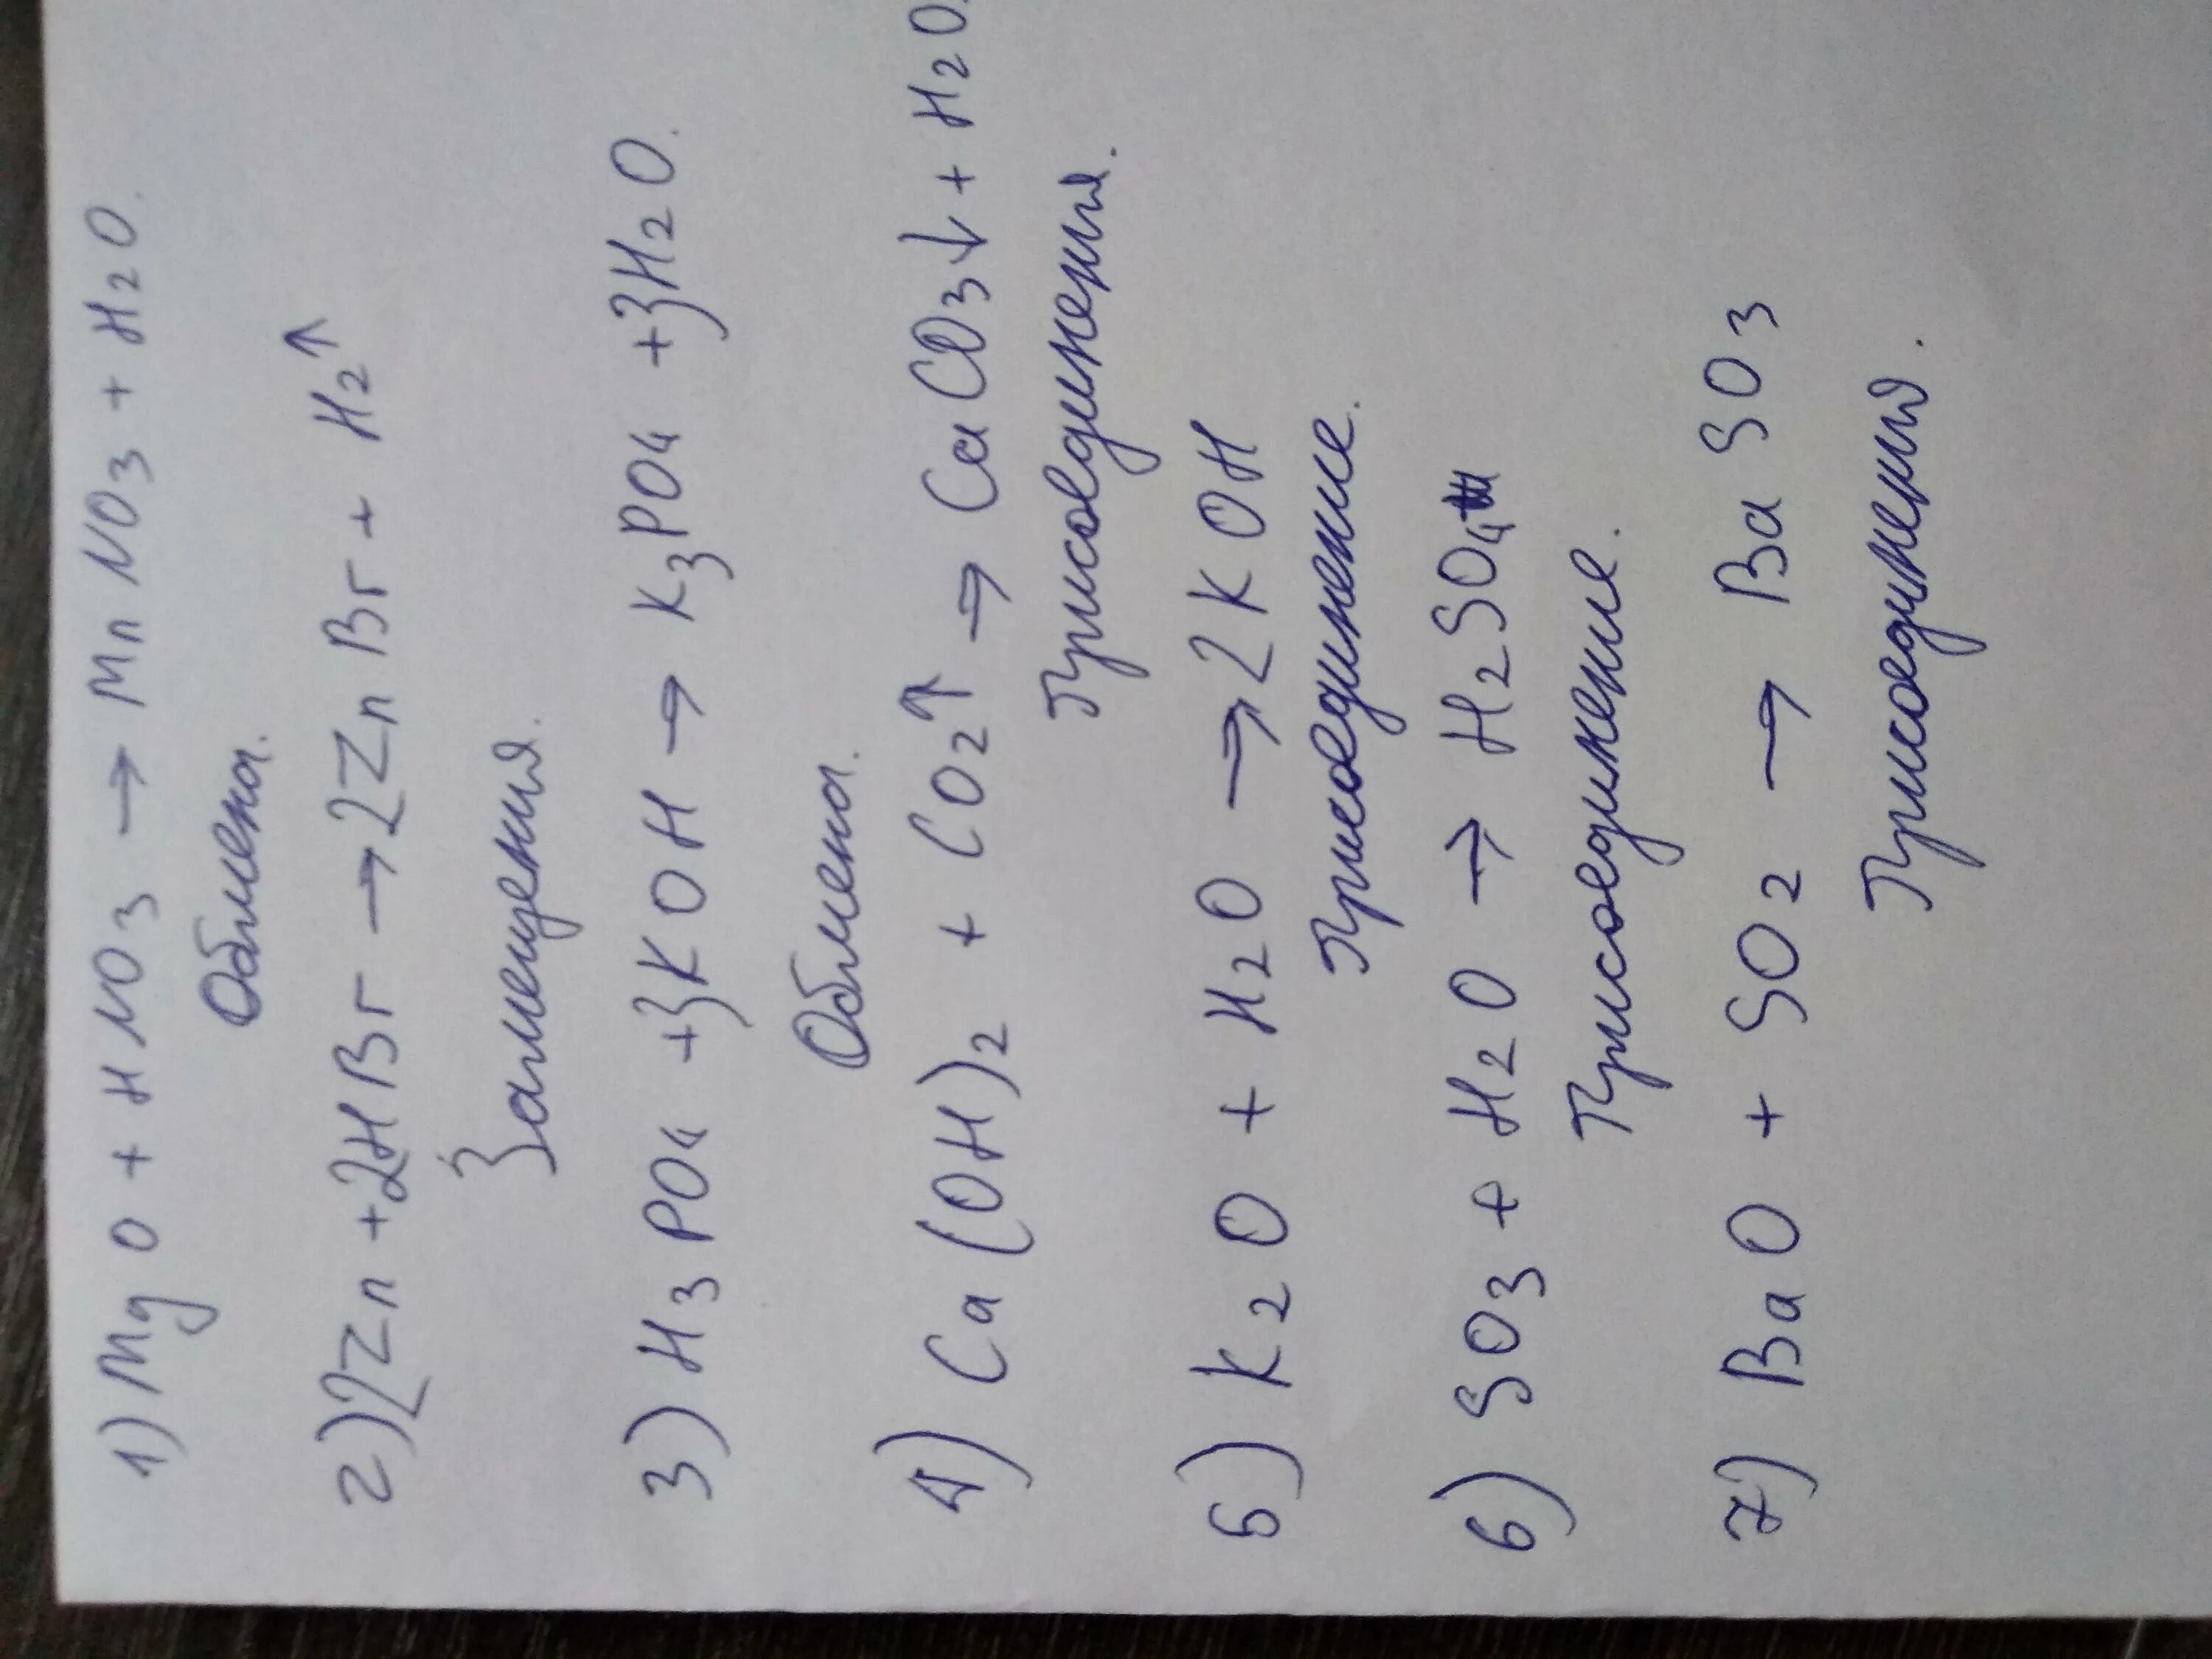 1) MgO + HNO3 → MnNO3 + H2O.
Обмена.
2) 2Zn + 2HBr → 2ZnBr + H2↑
Замещения.
3) H3PO4 + 3KOH → K3PO4 + 3H2O.
Обмена.
4) Ca(OH)2 + CO2↑ → CaCO3↓ + H2O.
Присоединения.
5) K2O + H2O → 2KOH
Присоединение.
6) SO3 + H2O → H2SO4
Присоединение.
7) BaO + SO2 → BaSO3
Присоединения.